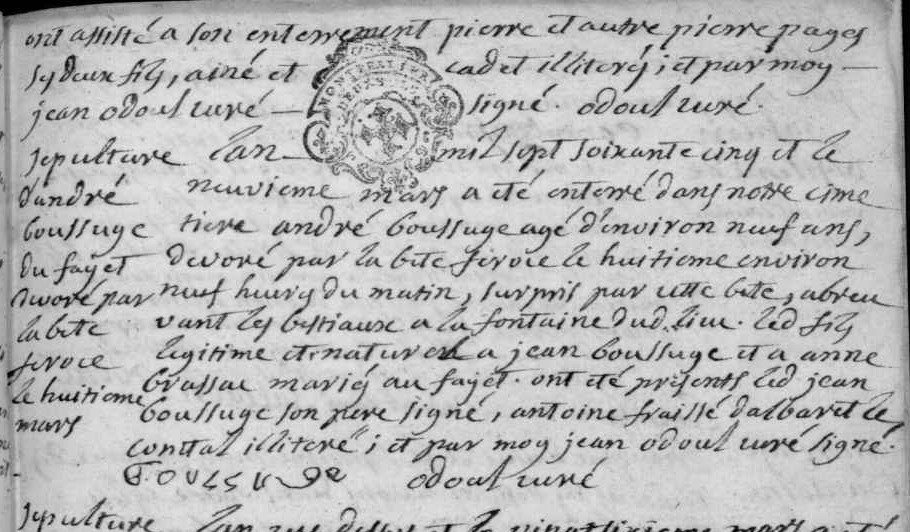 ont assisté a son enterrement pierre et autre pierre pages
ses deux fils, ainé et cadet illiterés; et par moy
jean odoul curé signé. odoul curé.
sepulture
d'andré
boussuge
du fajet
devoré par
la bete
feroce
le huitieme
mars
l'an mil sept soixante cinq et le
neuvieme mars a eté enterré dans notre cime
tiere andré boussuge agé d'environ neuf ans,
devoré par la bete feroce le huitieme environ
neuf heures du matin, surpris par cette bete, abreu
vant les bestiaux a la fontaine dud. lieu. led fils
legitime et naturel a jean boussuge et a anne
brassac mariés au fajet. ont eté présents led. jean
boussuge son pere signé, antoine fraissé d'albaret le
comtal illiteré; et par moy jean odoul curé signé.
odoul curé
sepulture l'an que dessus et le vingt